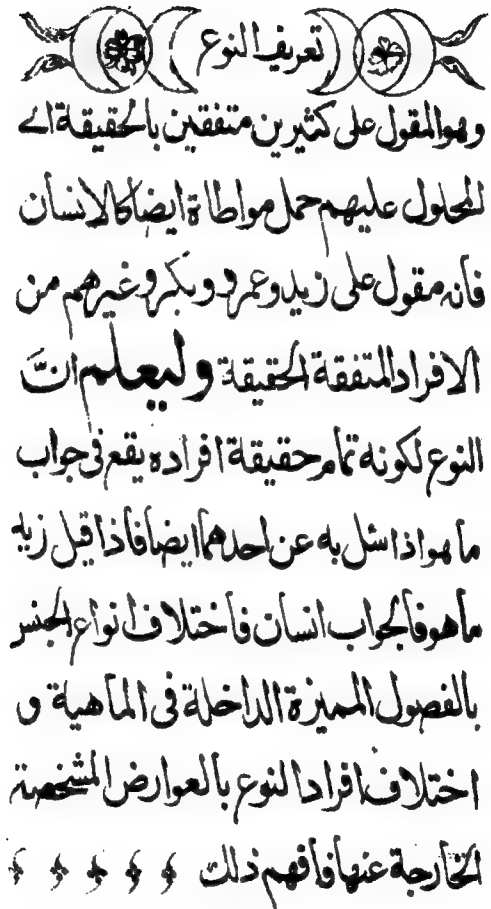 تعريف النوع
وهو المقول على كثيرين متفقين بالحقيقة اى
المحلول عليهم حمل مواطاة ايضا كالانسان
فانه مقول على زيد وعمرو وبكر وغيرهم من
الافراد المتفقة الحقيقة وليعلم انَّ
النوع لكونه تمام حقيقة افراده يقع فى جواب
ما هو اذا سئل به عن احدهما ايضا فاذا قيل زيد
ما هو فالجواب انسان فاختلاف انواع الجنس
بالفصول المميزة الداخلة فى الماهية و
اختلاف افراد النوع بالعوارض المشخصة
الخارجة عنها فافهم ذلك